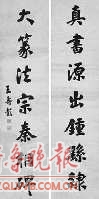 真書源出鍾繇隸
大篆法宗秦碑
王壽彭